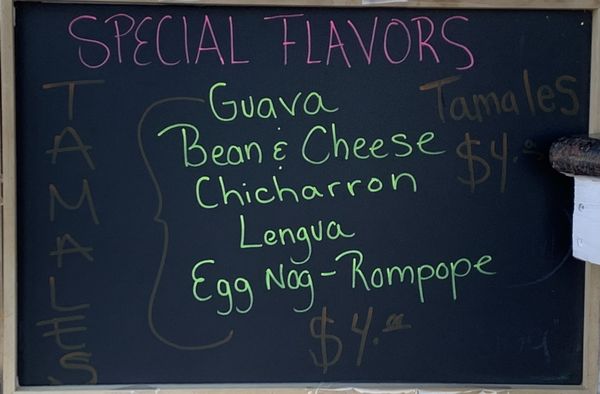 SPECIAL FLAVORS
TAMALES
Guava
Bean & Cheese
Chicharron
Lengua
Egg Nog-Rompope
$4.00
Tamales
$4.00